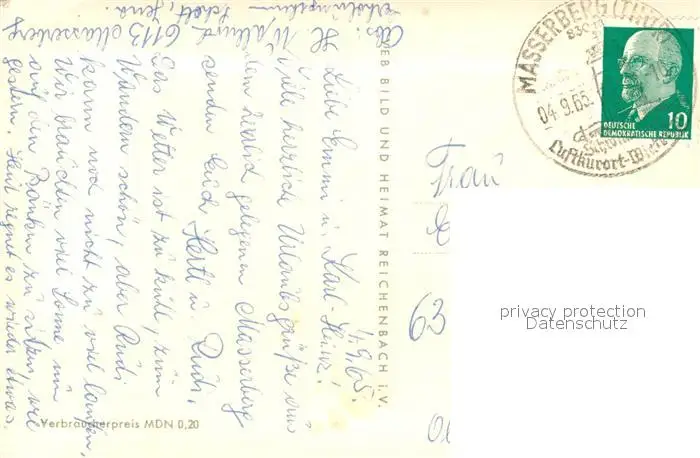 Abs. H. Wallurd 6113 Masserberg
Erholungsheim Schott, Jena.
1.9.65.
Liebe Emmi u. Karl-Heinz!
Viele herzlich Urlaubsgrüße aus
dem herrlich gelegenen Masserberg
senden Euch Hertl u. Rudi,
Das Wetter ist zu kalt, zum
Wandern schön, aber Rudi
kann noch nicht zu viel laufen,
Wir brauchten viel Sonne um
auf den Bänken zu sitzen, wie
gestern. Heut regnet es wieder etwas.
VEB BILD UND HEIMAT REICHENBACH i. V.
Verbraucherpreis MDN 0,20
MASSERBERG (THÜR
830
04.9.65
Luftkurort-
10
DEUTSCHE
DEMOKRATISCHE REPUBLIK
Frau
63
privacy protection
Datenschutz